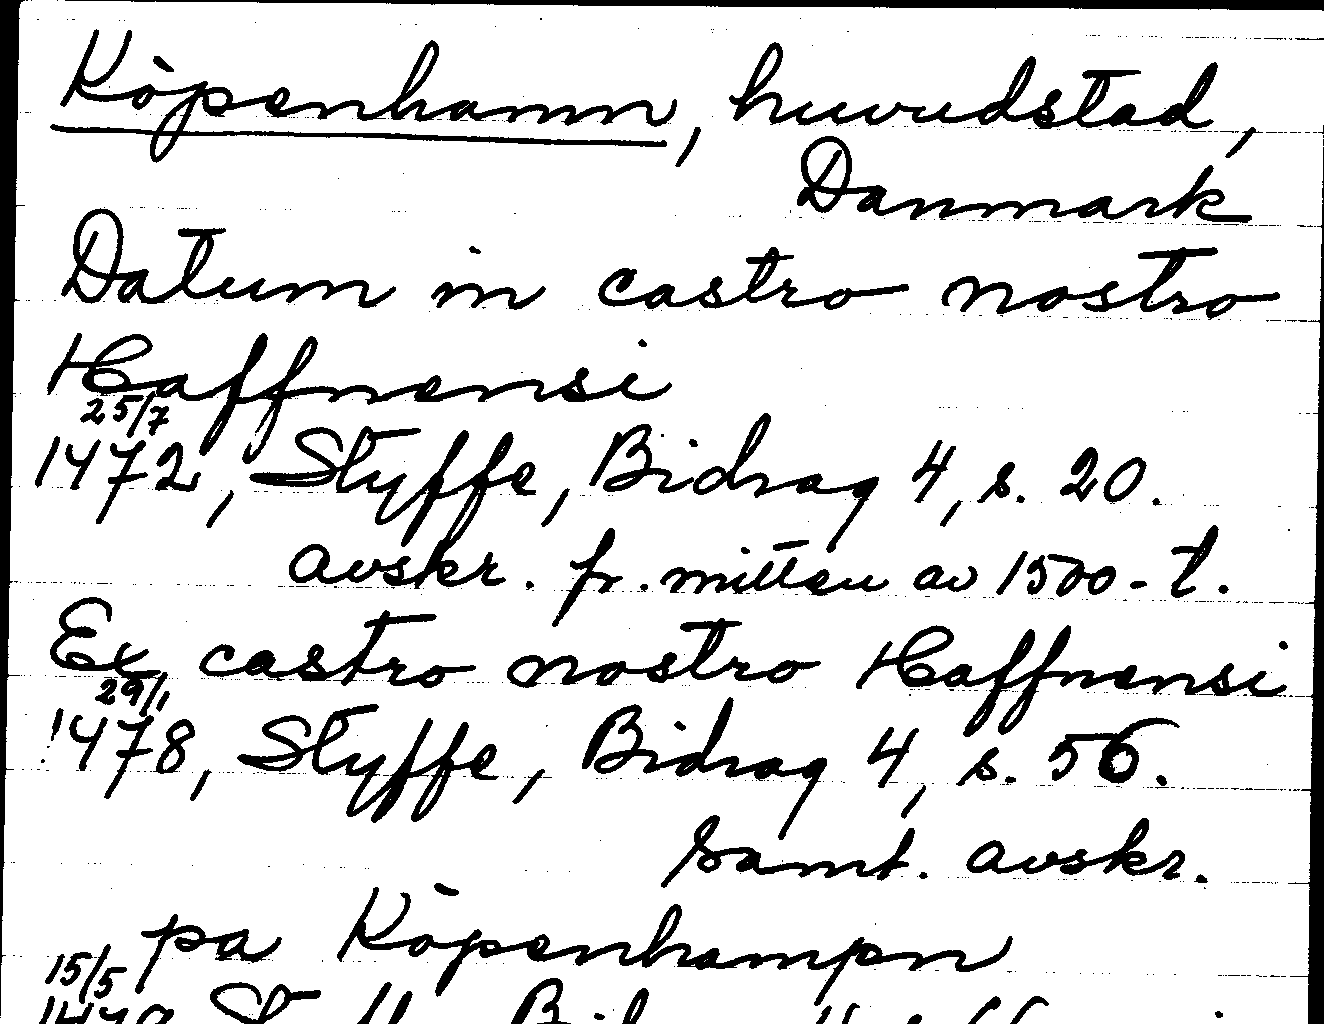 Köpenhamn, huvudstad,
Danmark
Datum in castro nostro
Haffnensi
25/7
1472, Styffe, Bidrag 4, s. 20.
avskr. fr. mitten av 1500-t.
Ex castro nostro Haffnensi
29/1
1478, Styffe, Bidrag 4, s. 56.
samt. avskr.
pa Köpenhampn
15/5